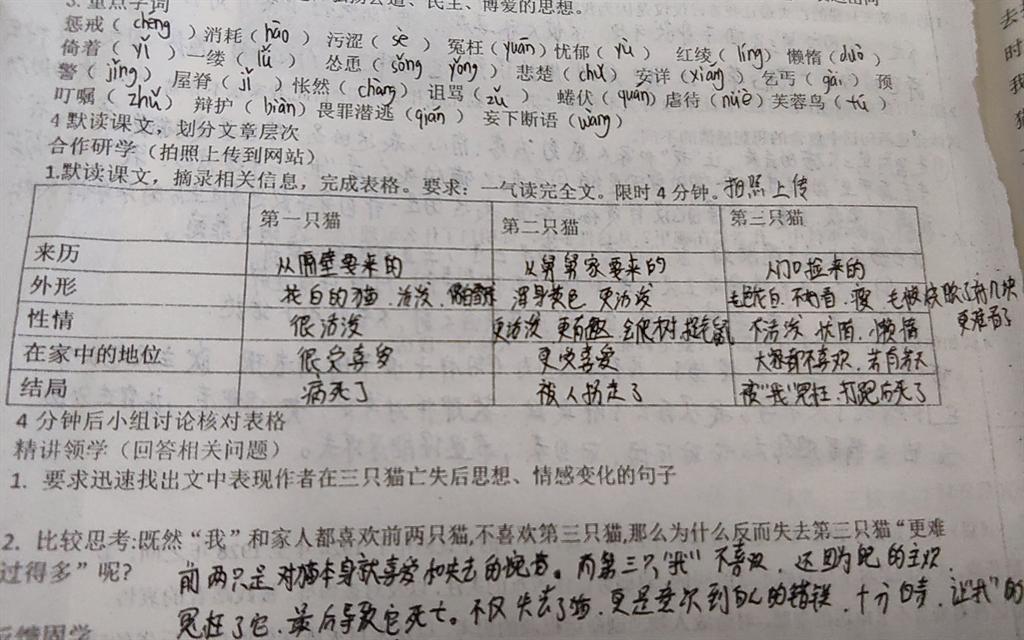 3. 重点字词
民主、博爱的思想。
惩戒（chěng）消耗（hào） 污涩（sè） 冤枉（yuān）忧郁（yù） 红绫（líng）懒惰（duò）
倚着（yǐ）一缕（lǚ） 怂恿（sǒng yǒng）悲楚（chǔ）安详（xiáng）乞丐（gài）预
警（jǐng） 屋脊（jǐ）怅然（chàng）诅骂（zǔ） 蜷伏（quán）虐待（nüè）芙蓉鸟（fú）
叮嘱（zhǔ） 辩护（biàn）畏罪潜逃（qián） 妄下断语（wàng）
4 默读课文，划分文章层次
合作研学（拍照上传到网站）
1.默读课文，摘录相关信息，完成表格。要求：一气读完全文。限时 4 分钟。拍照上传
第一只猫 第二只猫 第三只猫
来历 从隔壁要来的 从舅舅家要来的 从门口捡来的
外形 花白的猫、活泼、 浑身黄色 更活泼 毛花白、不好看、瘦 毛被烧脱了好几块 更难看了
性情 很活泼 更活泼 更有趣 会爬树 捉老鼠 不活泼 忧郁、懒惰
在家中的地位 很受喜爱 更受喜爱 大家都不喜欢、若有若无
结局 病死了 被人拐走了 被“我”冤枉、打跑后死了
4 分钟后小组讨论核对表格
精讲领学（回答相关问题）
1. 要求迅速找出文中表现作者在三只猫亡失后思想、情感变化的句子
2. 比较思考:既然“我”和家人都喜欢前两只猫,不喜欢第三只猫,那么为什么反而失去第三只猫“更难
过得多”呢?
前两只是对猫本身就喜爱和失去的惋惜。而第三只“我”不喜欢，还因为的主观
冤枉了它，最后导致它死亡。不仅失去了猫，更是意识到自己的错误，十分自责，让“我”的
反馈固学